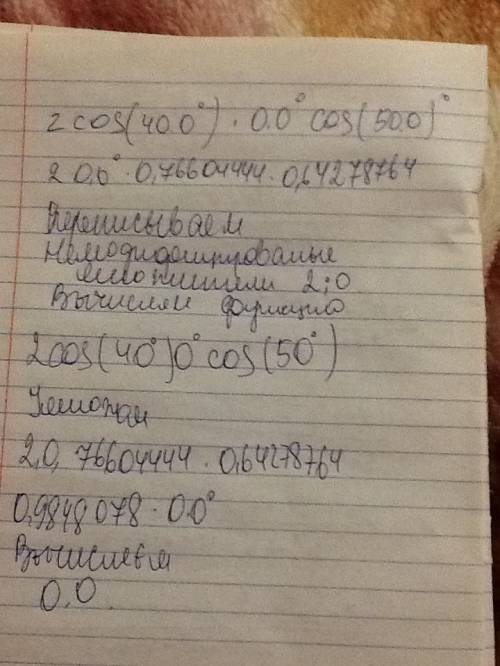 2 cos(40.0°) · 0.0° cos(50.0)°
2 0.0° · 0,76604444 · 0,64278764
Переписываем
Немодифицированые
множители 2;0
Вычисляем
2cos(40°)0°cos(50°)
Умножаем
2,0, 76604444 · 0,64278764
0,9848078 · 0.0°
Вычисляем
0.0.